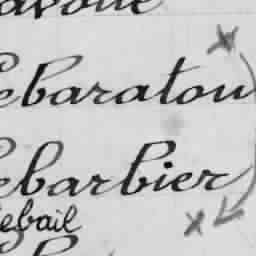 avoue
ebaraton
ebarbier
ebail